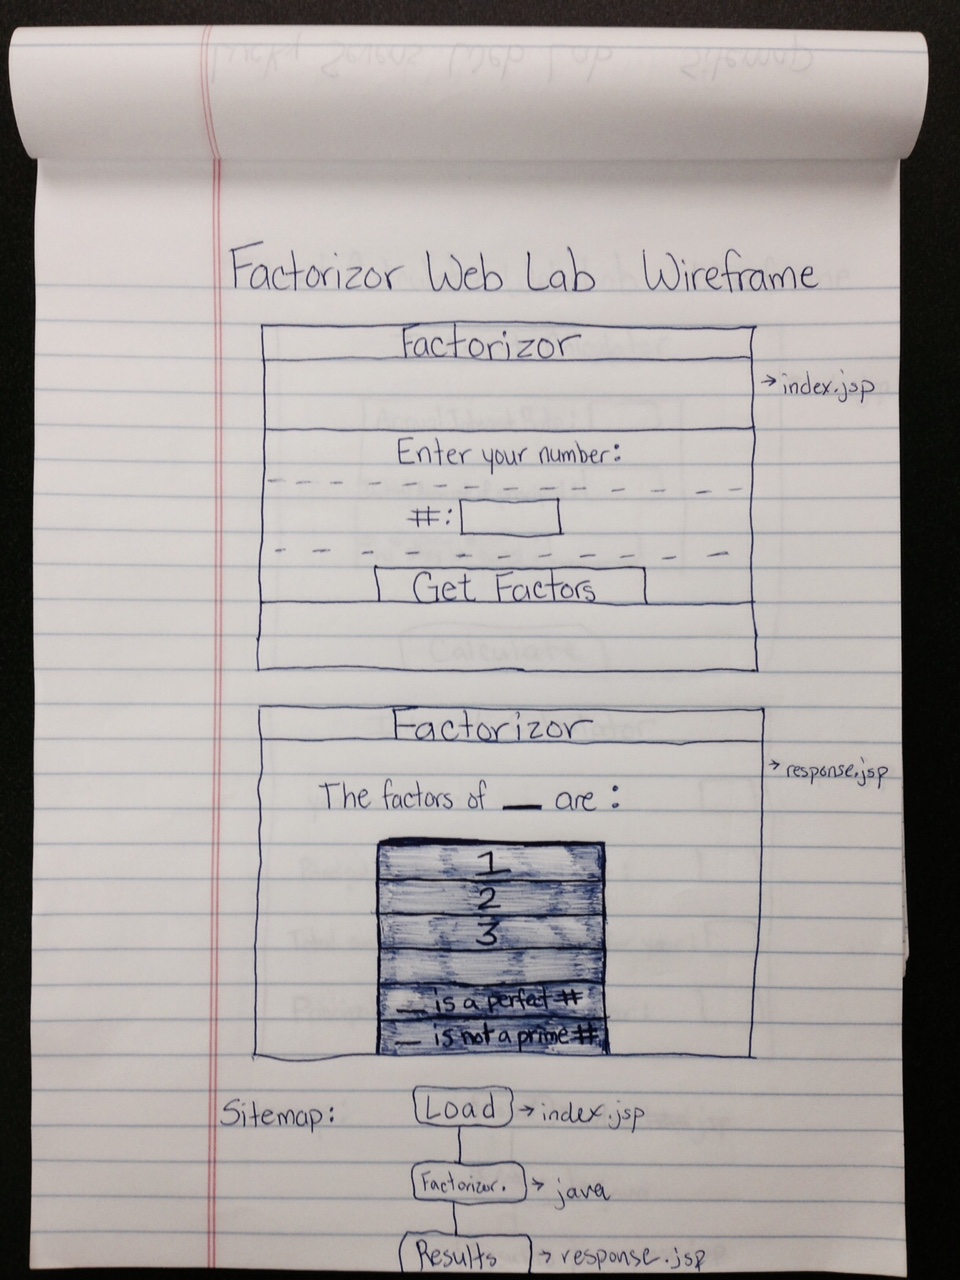 Lucky Sevens Web Lab Sitemap
Factorizor Web Lab Wireframe
Factorizor
→ index.jsp
Enter your number:
#:
Get Factors
Factorizor
→ response.jsp
The factors of __ are :
1
2
3
__ is a perfect #
__ is not a prime #
Sitemap:
Load → index.jsp
Factorizor. → java
Results → response.jsp
Calculate